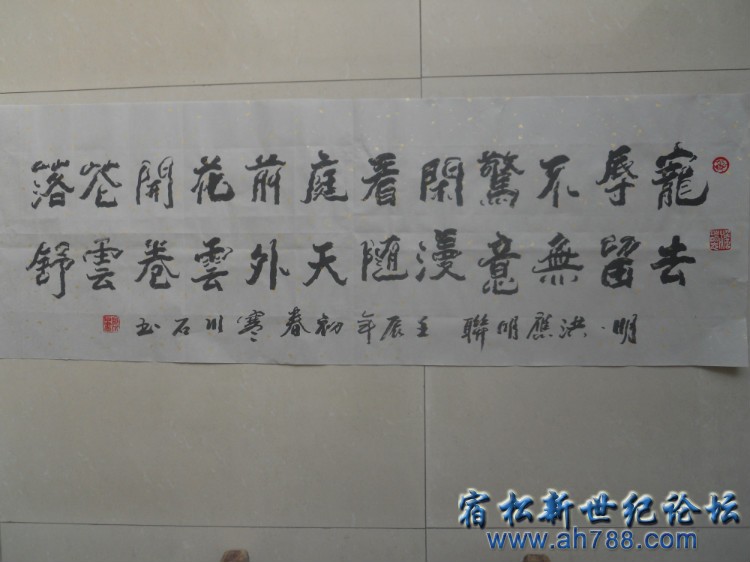 寵辱不驚閑看庭前花開花落
去留無意漫随天外雲卷雲舒
明·洪應明聯 壬辰年初春寒川石书
宿松新世纪论坛
www.ah788.com